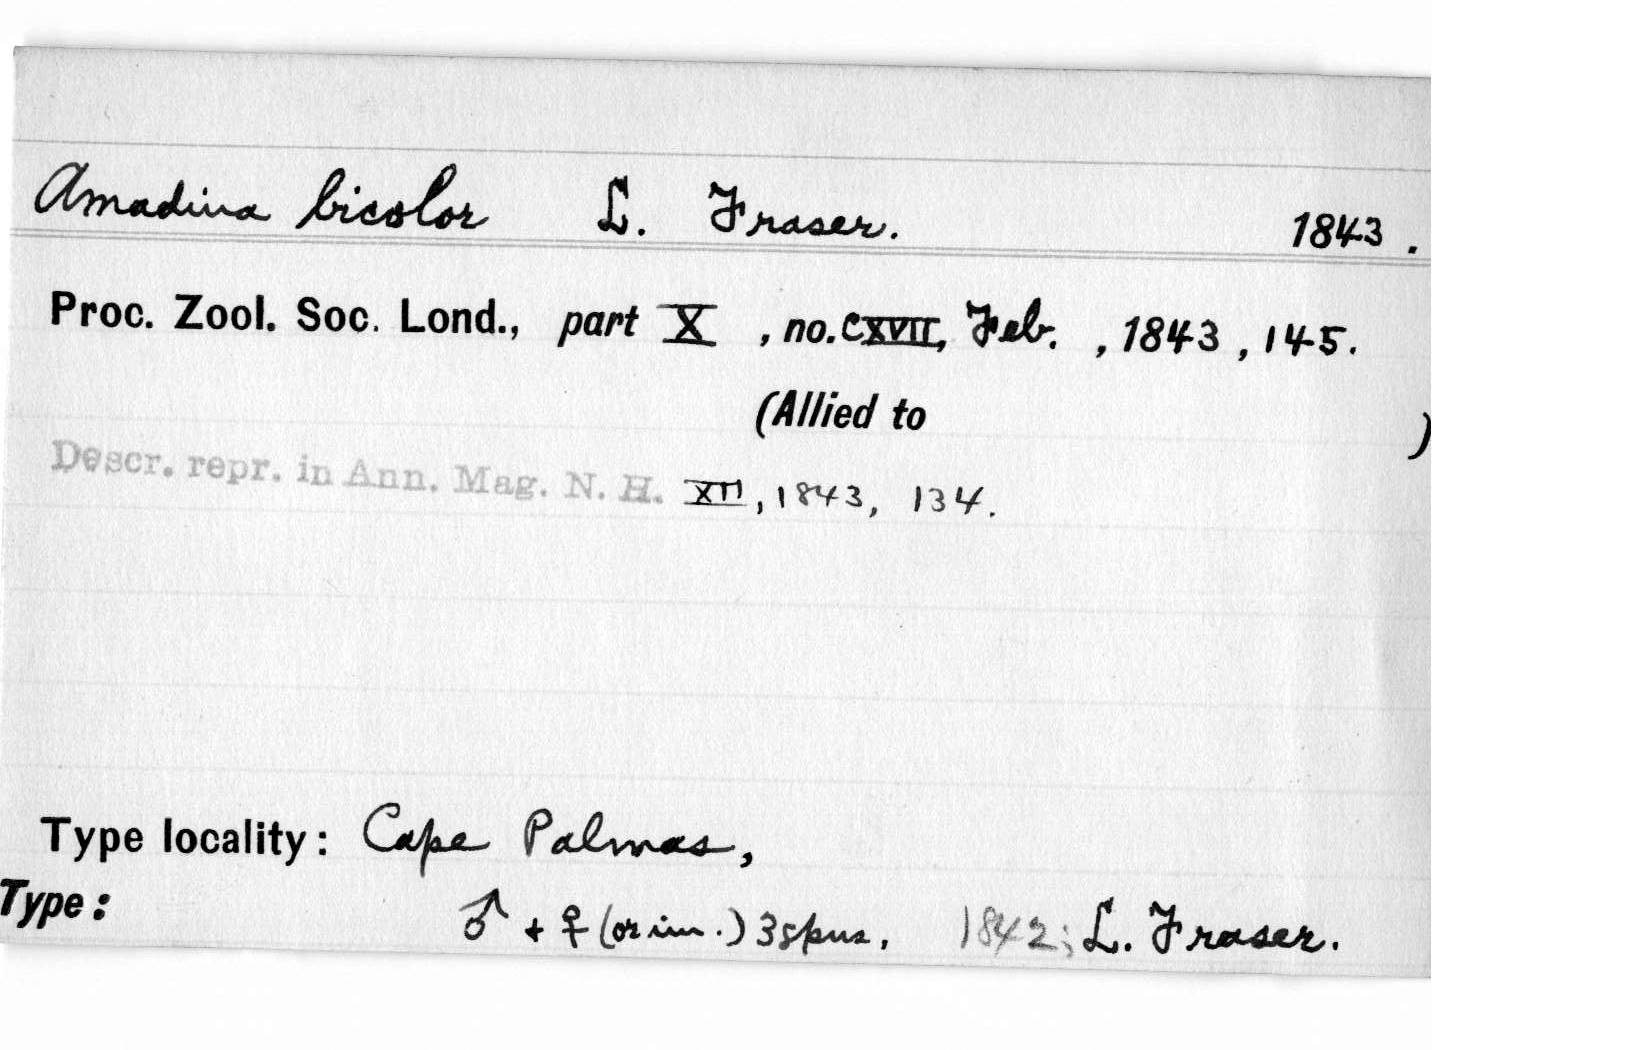 Amadina bicolor L. Fraser. 1843.
Proc. Zool. Soc. Lond., part X, no. CXVII, Feb., 1843, 145.
(Allied to )
Descr. repr. in Ann. Mag. N. H. XII, 1843, 134.
Type locality: Cape Palmas,
Type: ♂ + ♀ (or im.) 3 spns. 1842; L. Fraser.